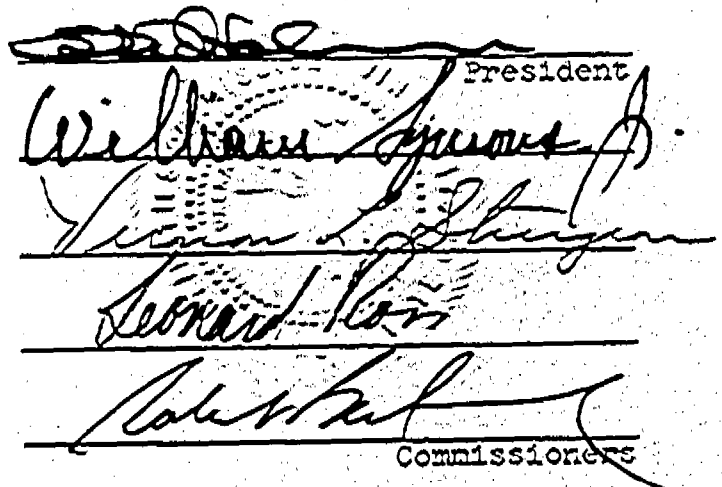 President
William Symons Jr.
Vernon L. Sturgeon
Leonard Ross
Commissioners